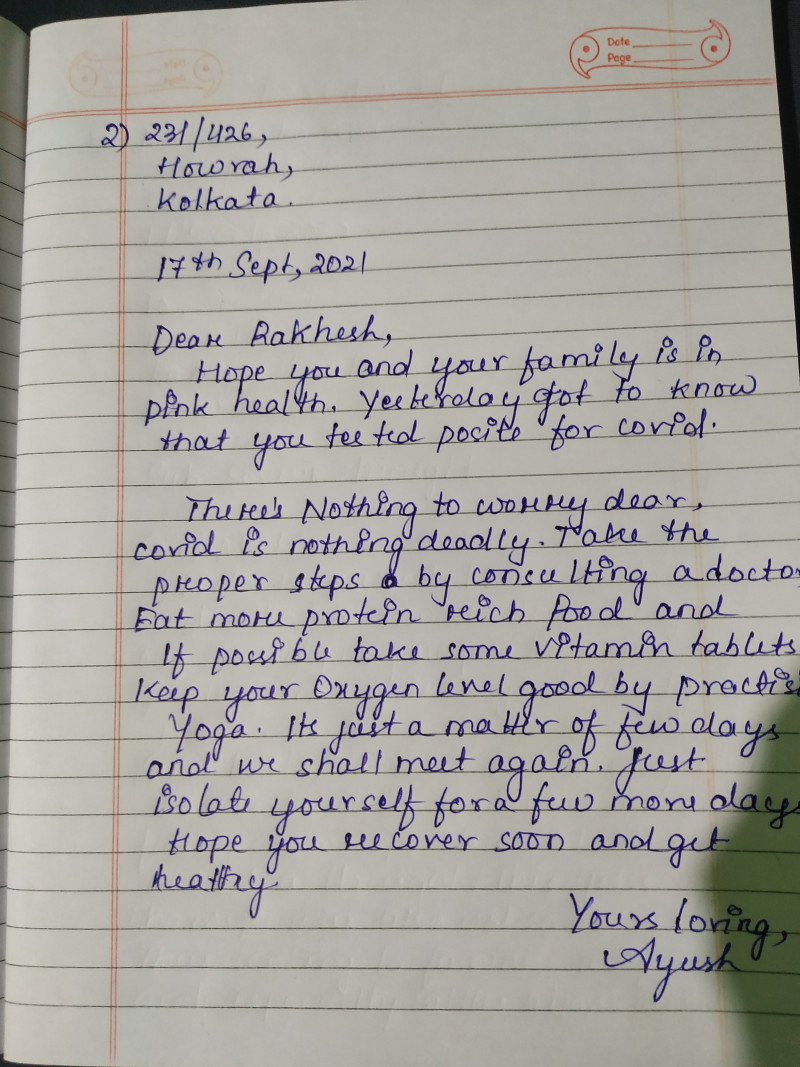 Date
Page
2) 231/426,
Howrah,
Kolkata.
17th Sept, 2021
Dear Rakhesh,
Hope you and your family is in
pink health. Yesterday got to know
that you tested posite for covid.
There's Nothing to worry dear,
covid is nothing deadly. Take the
proper steps by consulting a docto
Eat more protein reich food and
If possible take some vitamin tablets
Keep your Oxygen level good by practisi
Yoga. Its just a matter of few days
and we shall meet again. Just
isolate yourself for a few more days
Hope you recover soon and get
healthy.
Yours loving,
Ayush